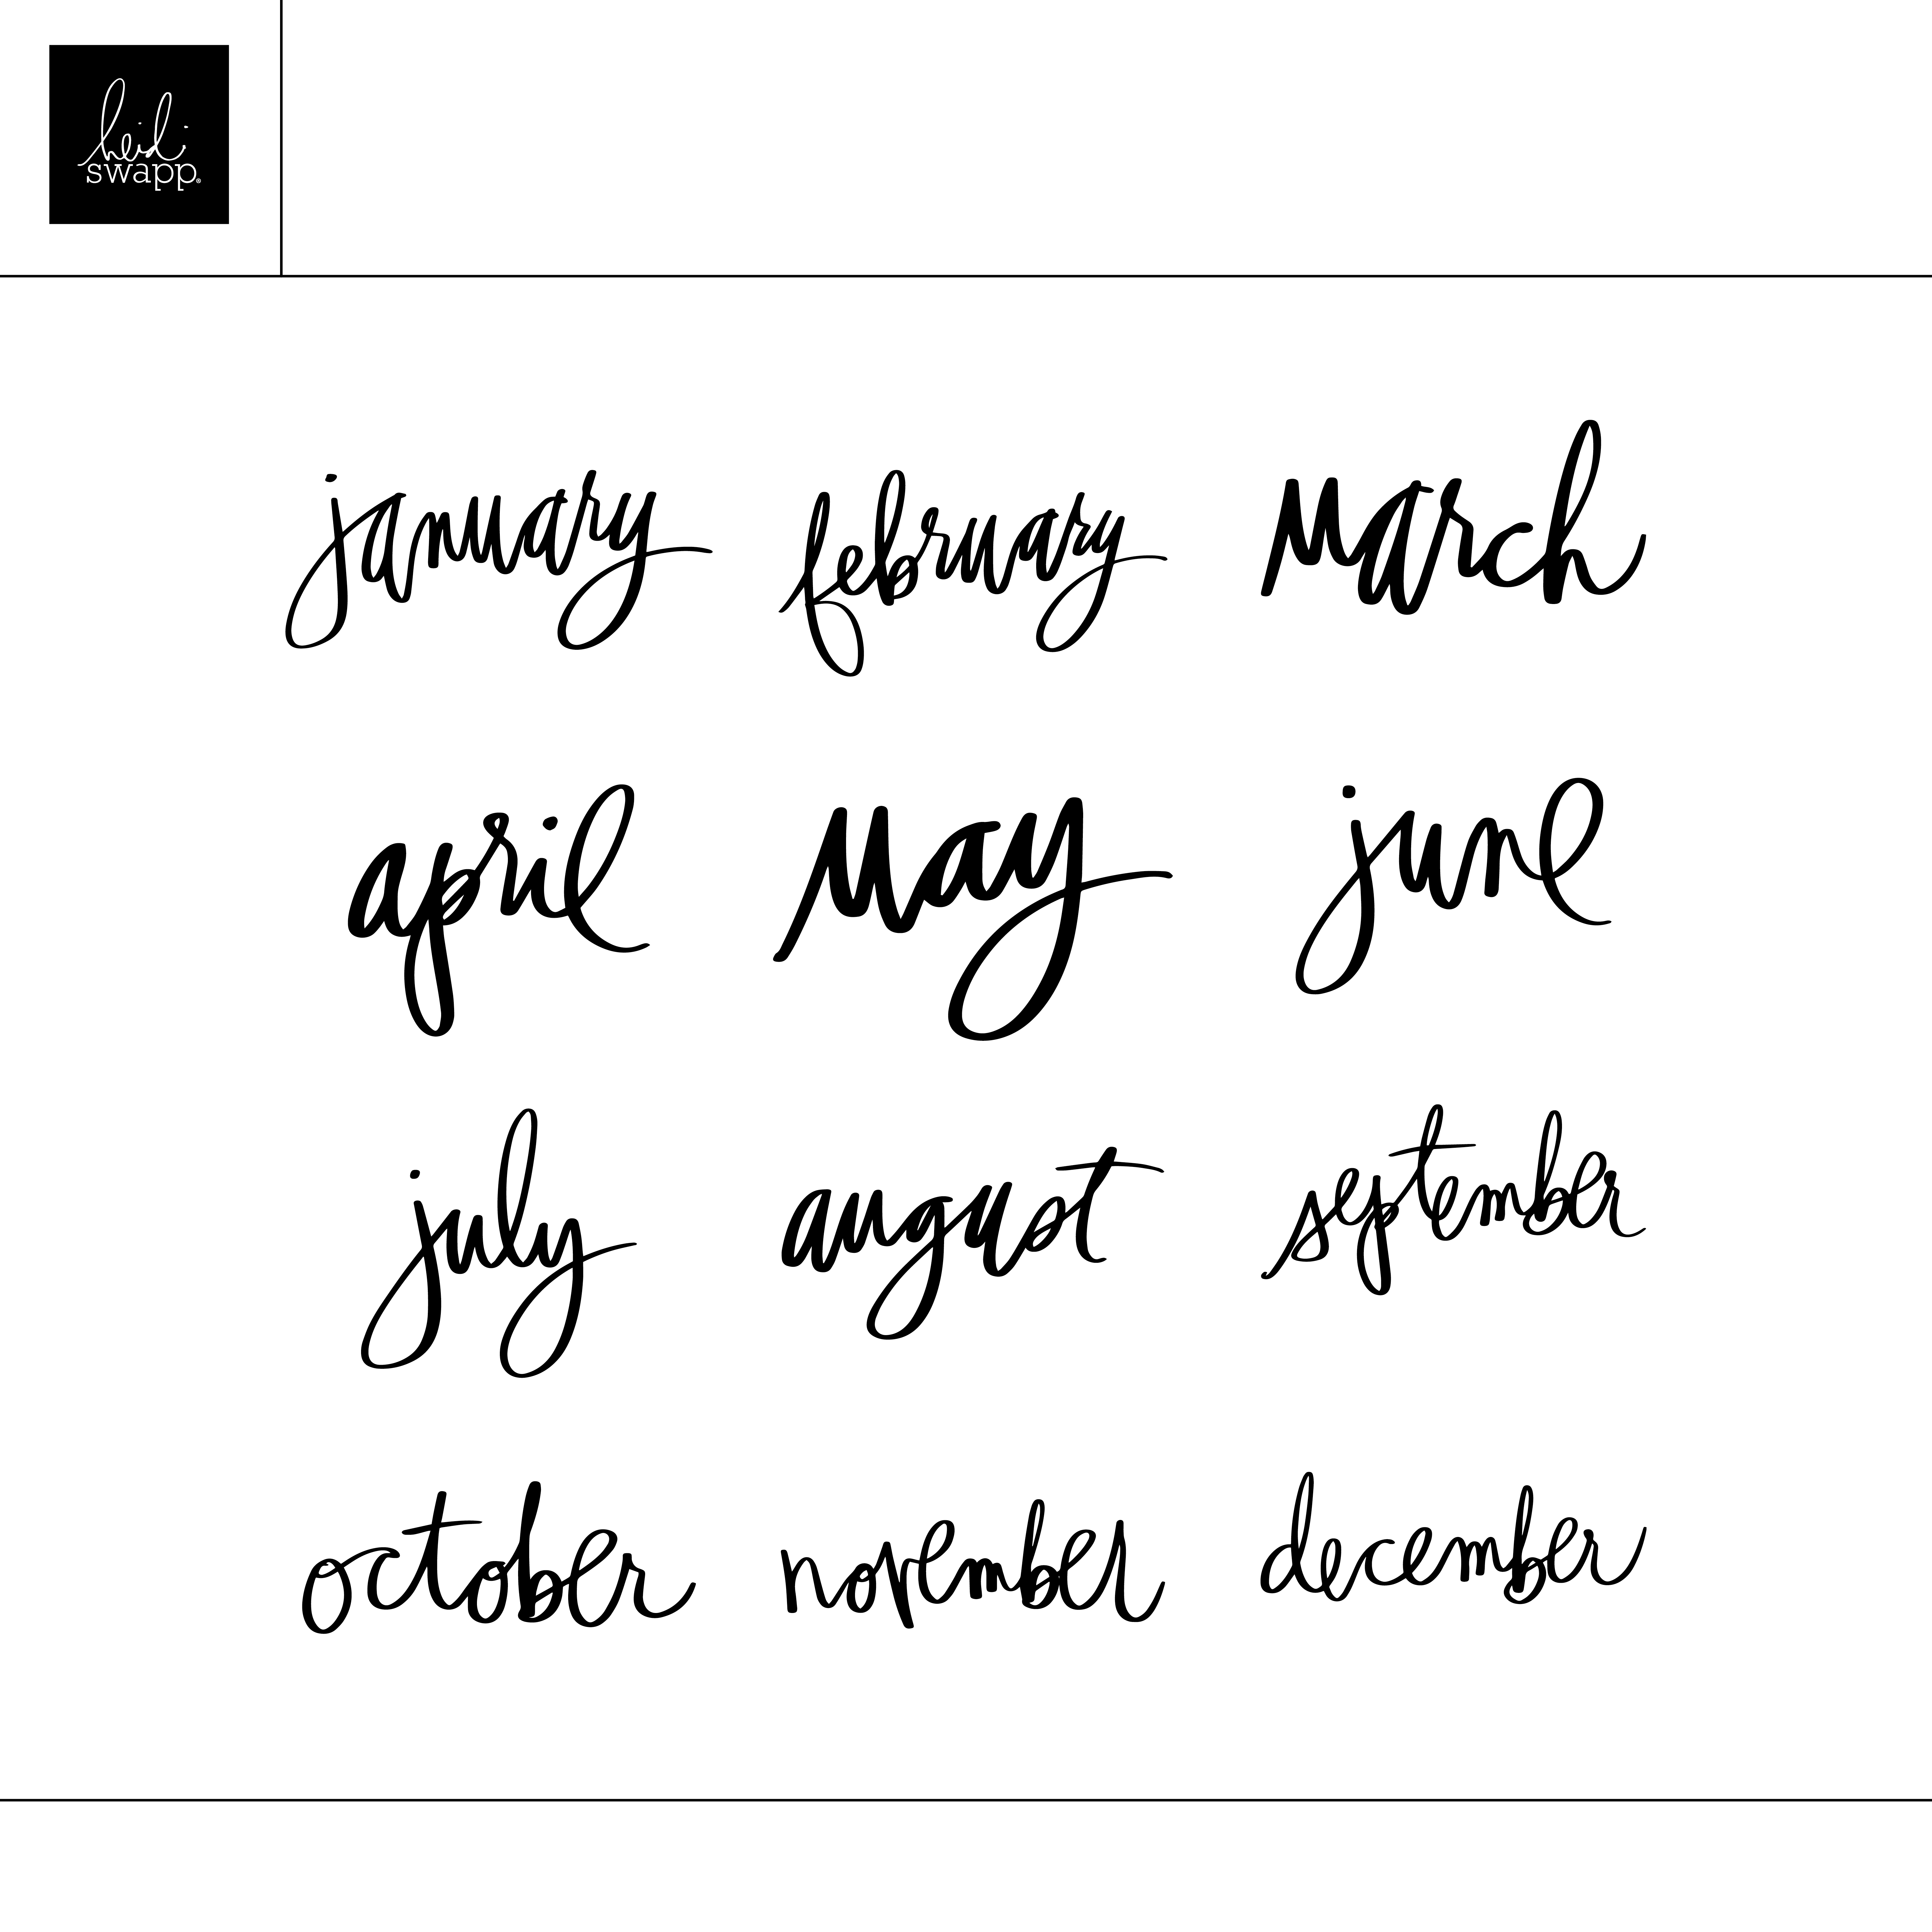 heidi
swapp®
january february march
april may june
july august september
october november december